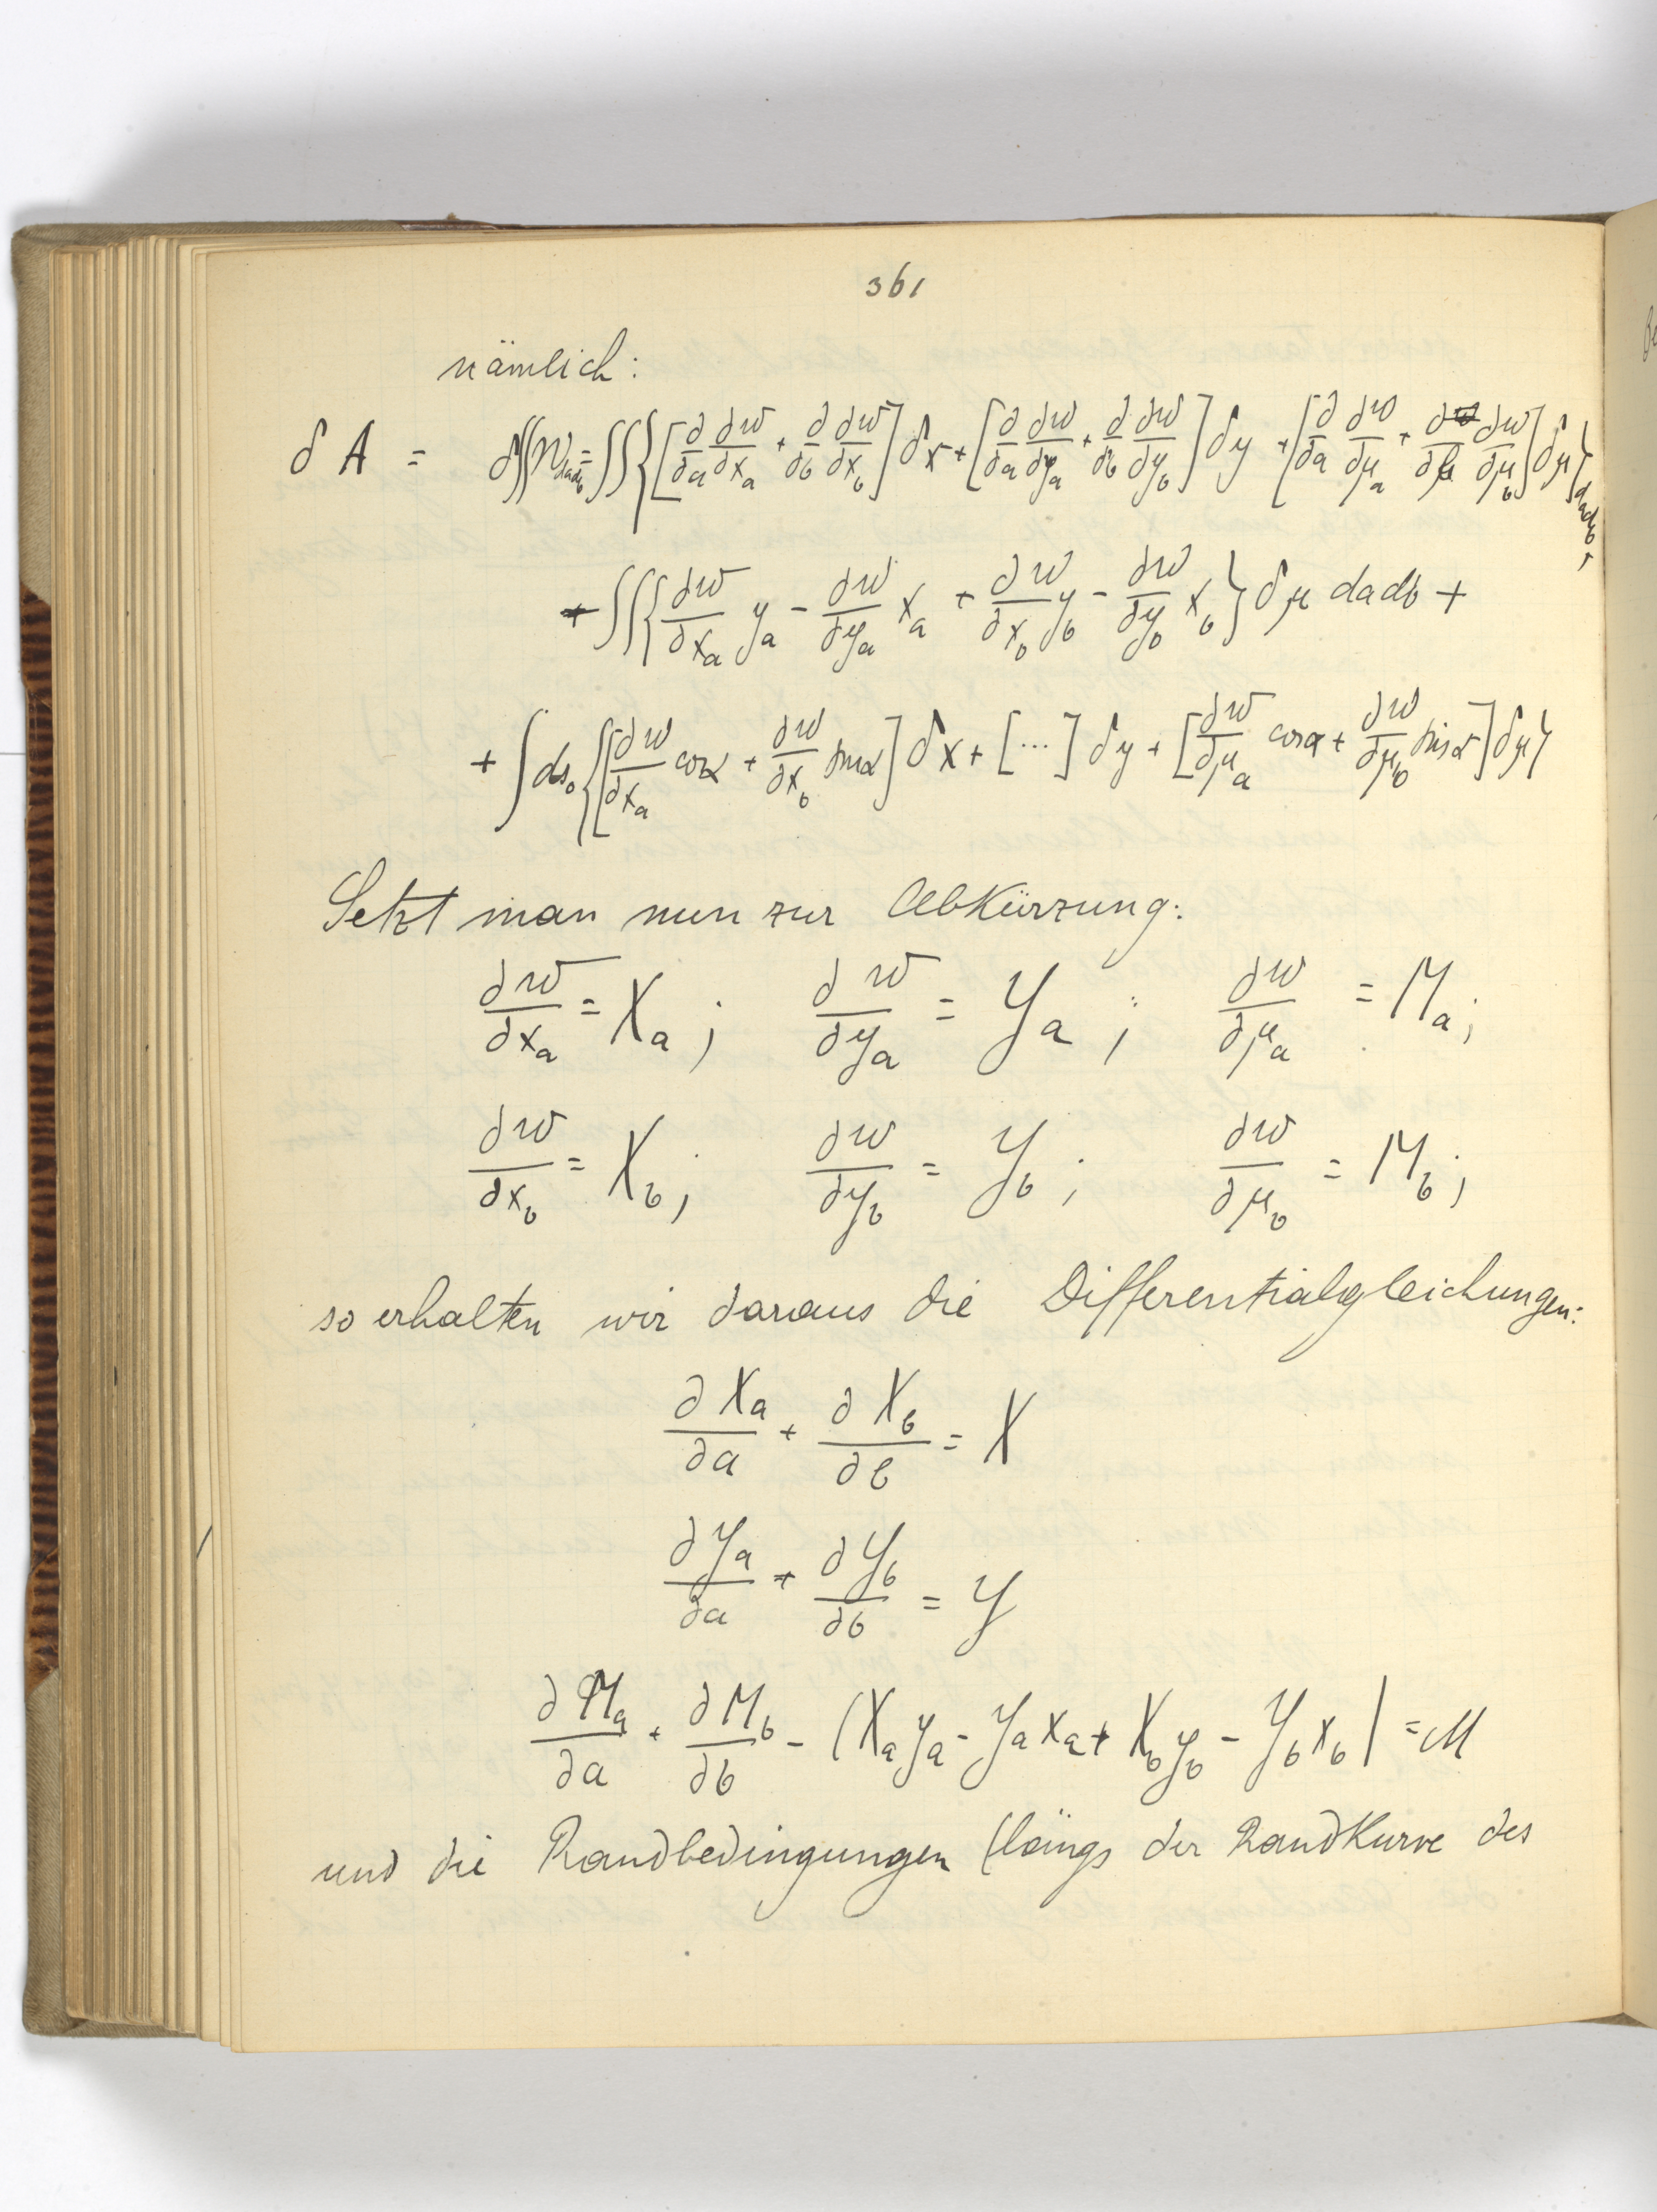 361
nämlich:
δA = δ∬W da db = ∬{[∂/∂a ∂w/∂x_a + ∂/∂b ∂w/∂x_b] δx + [∂/∂a ∂w/∂y_a + ∂/∂b ∂w/∂y_b] δy + [∂/∂a ∂w/∂μ_a + ∂/∂b ∂w/∂μ_b] δμ} da db +
+ ∬{∂w/∂x_a y_a - ∂w/∂y_a x_a + ∂w/∂x_b y_b - ∂w/∂y_b x_b} δμ da db +
+ ∫ds_0 {[∂w/∂x_a cos α + ∂w/∂x_b sin α] δx + [...] δy + [∂w/∂μ_a cos α + ∂w/∂μ_b sin α] δμ}
Setzt man nun zur Abkürzung:
∂w/∂x_a = X_a ; ∂w/∂y_a = Y_a ; ∂w/∂μ_a = M_a ;
∂w/∂x_b = X_b ; ∂w/∂y_b = Y_b ; ∂w/∂μ_b = M_b ;
so erhalten wir daraus die Differentialgleichungen:
∂X_a/∂a + ∂X_b/∂b = X
∂Y_a/∂a + ∂Y_b/∂b = Y
∂M_a/∂a + ∂M_b/∂b - (X_a y_a - Y_a x_a + X_b y_b - Y_b x_b) = M
und die Randbedingungen (längs der Randkurve des